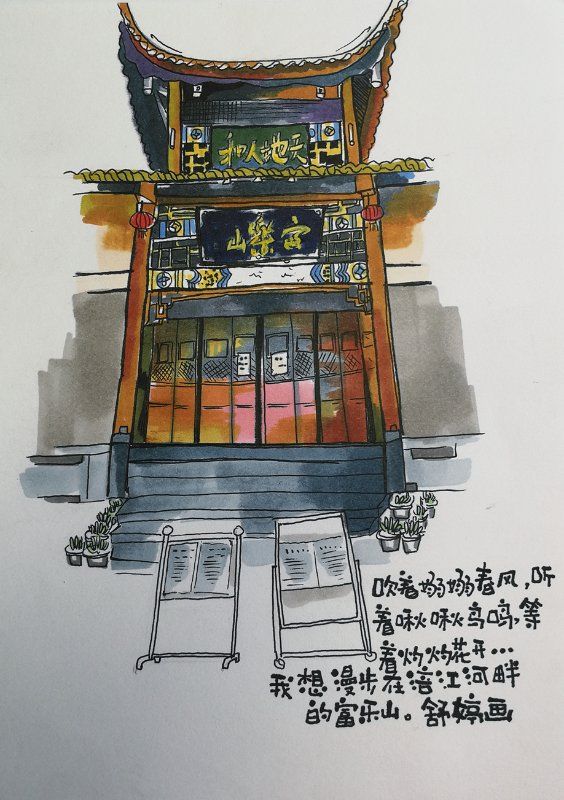 天地人和
富樂山
吹着嫋嫋春风,听
着啾啾鸟鸣,等
着灼灼花开...
我想漫步在涪江河畔
的富乐山。舒婷画